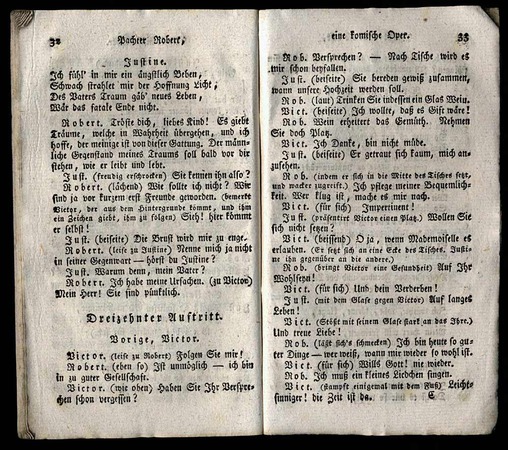 32 Pachter Robert,
Justine.
Ich fühl' in mir ein ängstlich Beben,
Schwach strahlet mir der Hoffnung Licht,
Des Vaters Traum gäb' neues Leben,
Wär das fatale Ende nicht.
Robert. Tröste dich, liebes Kind! Es giebt
Träume, welche in Wahrheit übergehen, und ich
hoffe, der meinige ist von dieser Gattung. Der männ-
liche Gegenstand meines Traums soll bald vor dir
stehen, wie er leibt und lebt.
Just. (freudig erschrocken) Sie kennen ihn also?
Robert. (lächend) Wie sollte ich nicht? Wir
sind ja vor kurzem erst Freunde geworden. (bemerkt
Victor, der aus dem Hintergrunde kommt, und ihm
ein Zeichen giebt, ihm zu folgen) Sieh! hier kömmt
er selbst!
Just. (beiseite) Die Brust wird mir zu enge.
Robert. (leise zu Justine) Nenne mich ja nicht
in seiner Gegenwart — hörst du Justine?
Just. Warum denn, mein Vater?
Robert. Ich habe meine Ursachen. (zu Victor)
Mein Herr! Sie sind pünktlich.
Dreizehnter Auftritt.
Vorige, Victor.
Victor. (leise zu Robert) Folgen Sie mir!
Robert. (eben so) Ist unmöglich — ich bin
in zu guter Gesellschaft.
Victor. (wie oben) Haben Sie Ihr Verspre-
chen schon vergessen?
eine komische Oper. 33
Rob. Versprechen? — Nach Tische wird es
mir schon beyfallen.
Just. (beiseite) Sie bereden gewiß zusammen,
wann unsere Hochzeit werden soll.
Rob. (laut) Trinken Sie indessen ein Glas Wein.
Vict. (beiseite) Ich wollte, daß es Gift wäre!
Rob. Wein erheitert das Gemüth. Nehmen
Sie doch Platz.
Vict. Ich Danke, bin nicht müde.
Just. (beiseite) Er getraut sich kaum, mich an-
zusehen.
Rob. (indem er sich in die Mitte des Tisches setzt,
und wacker zugreift.) Ich pflege meiner Bequemlich-
keit. Wer klug ist, mache es mir nach.
Vict. (für sich) Impertinent!
Just. (präsentirt Victor einen Platz.) Wollen Sie
sich nicht setzen?
Vict. (beissend) O ja, wenn Mademoiselle es
erlauben. (Er setzt sich an eine Ecke des Tisches. Justi-
ne ihm gegenüber an die andere.)
Rob. (bringt Victor eine Gesundheit) Auf Ihr
Wohlseyn!
Vict. (für sich) Und dein Verderben!
Just. (mit dem Glase gegen Victor) Auf langes
Leben!
Vict. (Stößt mit seinem Glase stark an das Ihre.)
Und treue Liebe!
Rob. (läßt sich's schmecken) Ich bin heute so gu-
ter Dinge — wer weiß, wann mir wieder so wohl ist.
Vict. (für sich) Wills Gott! nie wieder.
Rob. Ich muß ein kleines Liedchen singen.
Vict. (stampft einigemal mit dem Fuß) Leicht-
sinniger! die Zeit ist da.